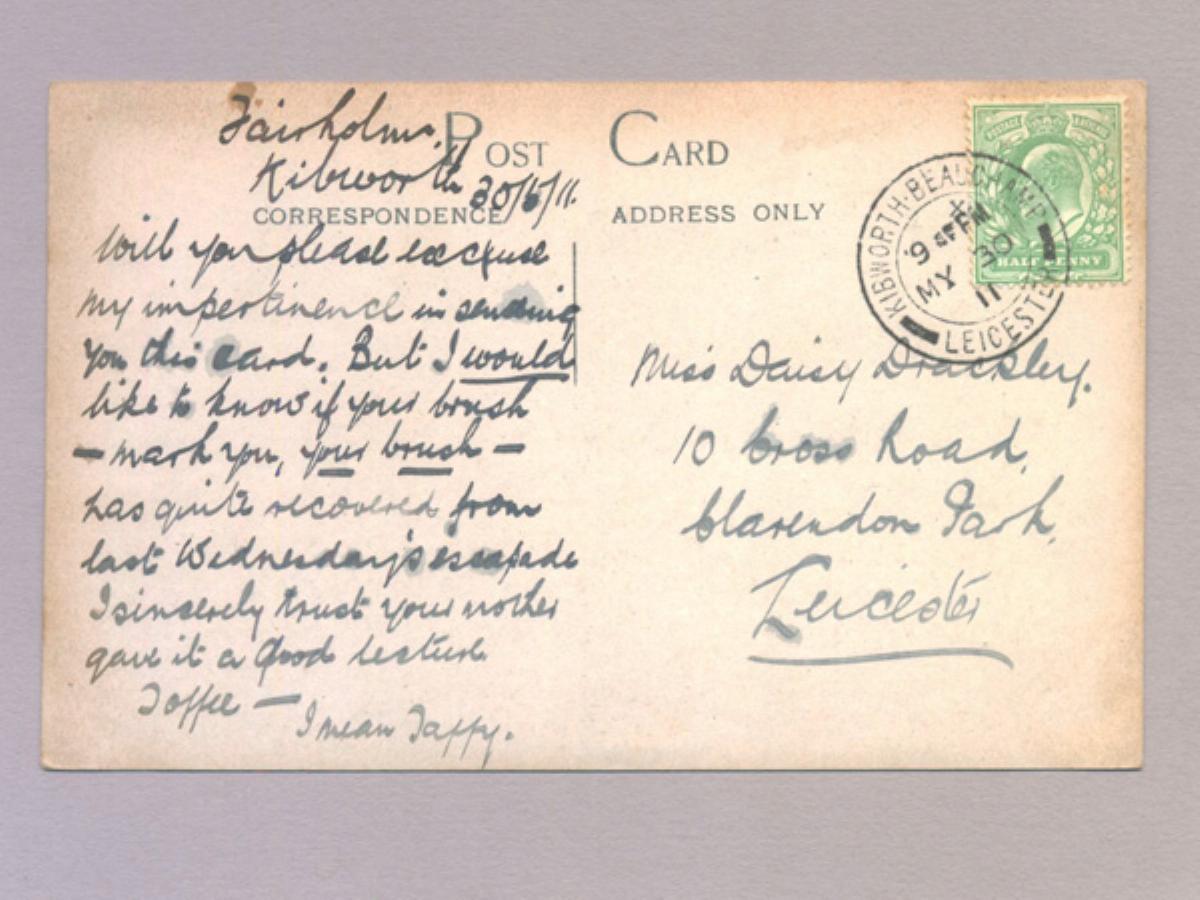 Fairholme,
Kibworth
30/5/11.
POST CARD
CORRESPONDENCE
ADDRESS ONLY
Will you please excuse
my impertinence in sending
you this card. But I would
like to know if your brush
— mark you, your brush —
has quite recovered from
last Wednesday's escapade
I sincerely trust your mother
gave it a good lecture.
Toffee —
I mean Taffy.
Miss Daisy Drackley.
10 Cross Road,
Clarendon Park,
Leicester
POSTAGE
HALF PENNY
KIBWORTH-BEAUCHAMP
MY 30
11
LEICESTER